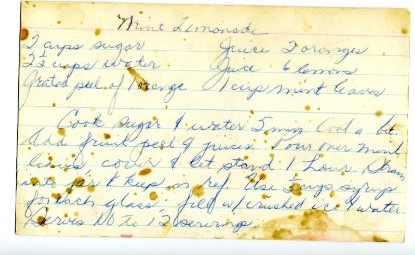 Mint Lemonade
2 cups sugar Juice 2 oranges
2½ cups water Juice 6 lemons
Grated peel of 1 orange 1 cup mint leaves
Cook sugar & water 5 min Cool a bit
Add fruit peel & juices Pour over mint
leaves cover & let stand 1 hour. Strain
into jar & keep in ref. Use ⅓ cup syrup
for each glass. fill w/ crushed ice & water.
Serves 10 to 12 servings